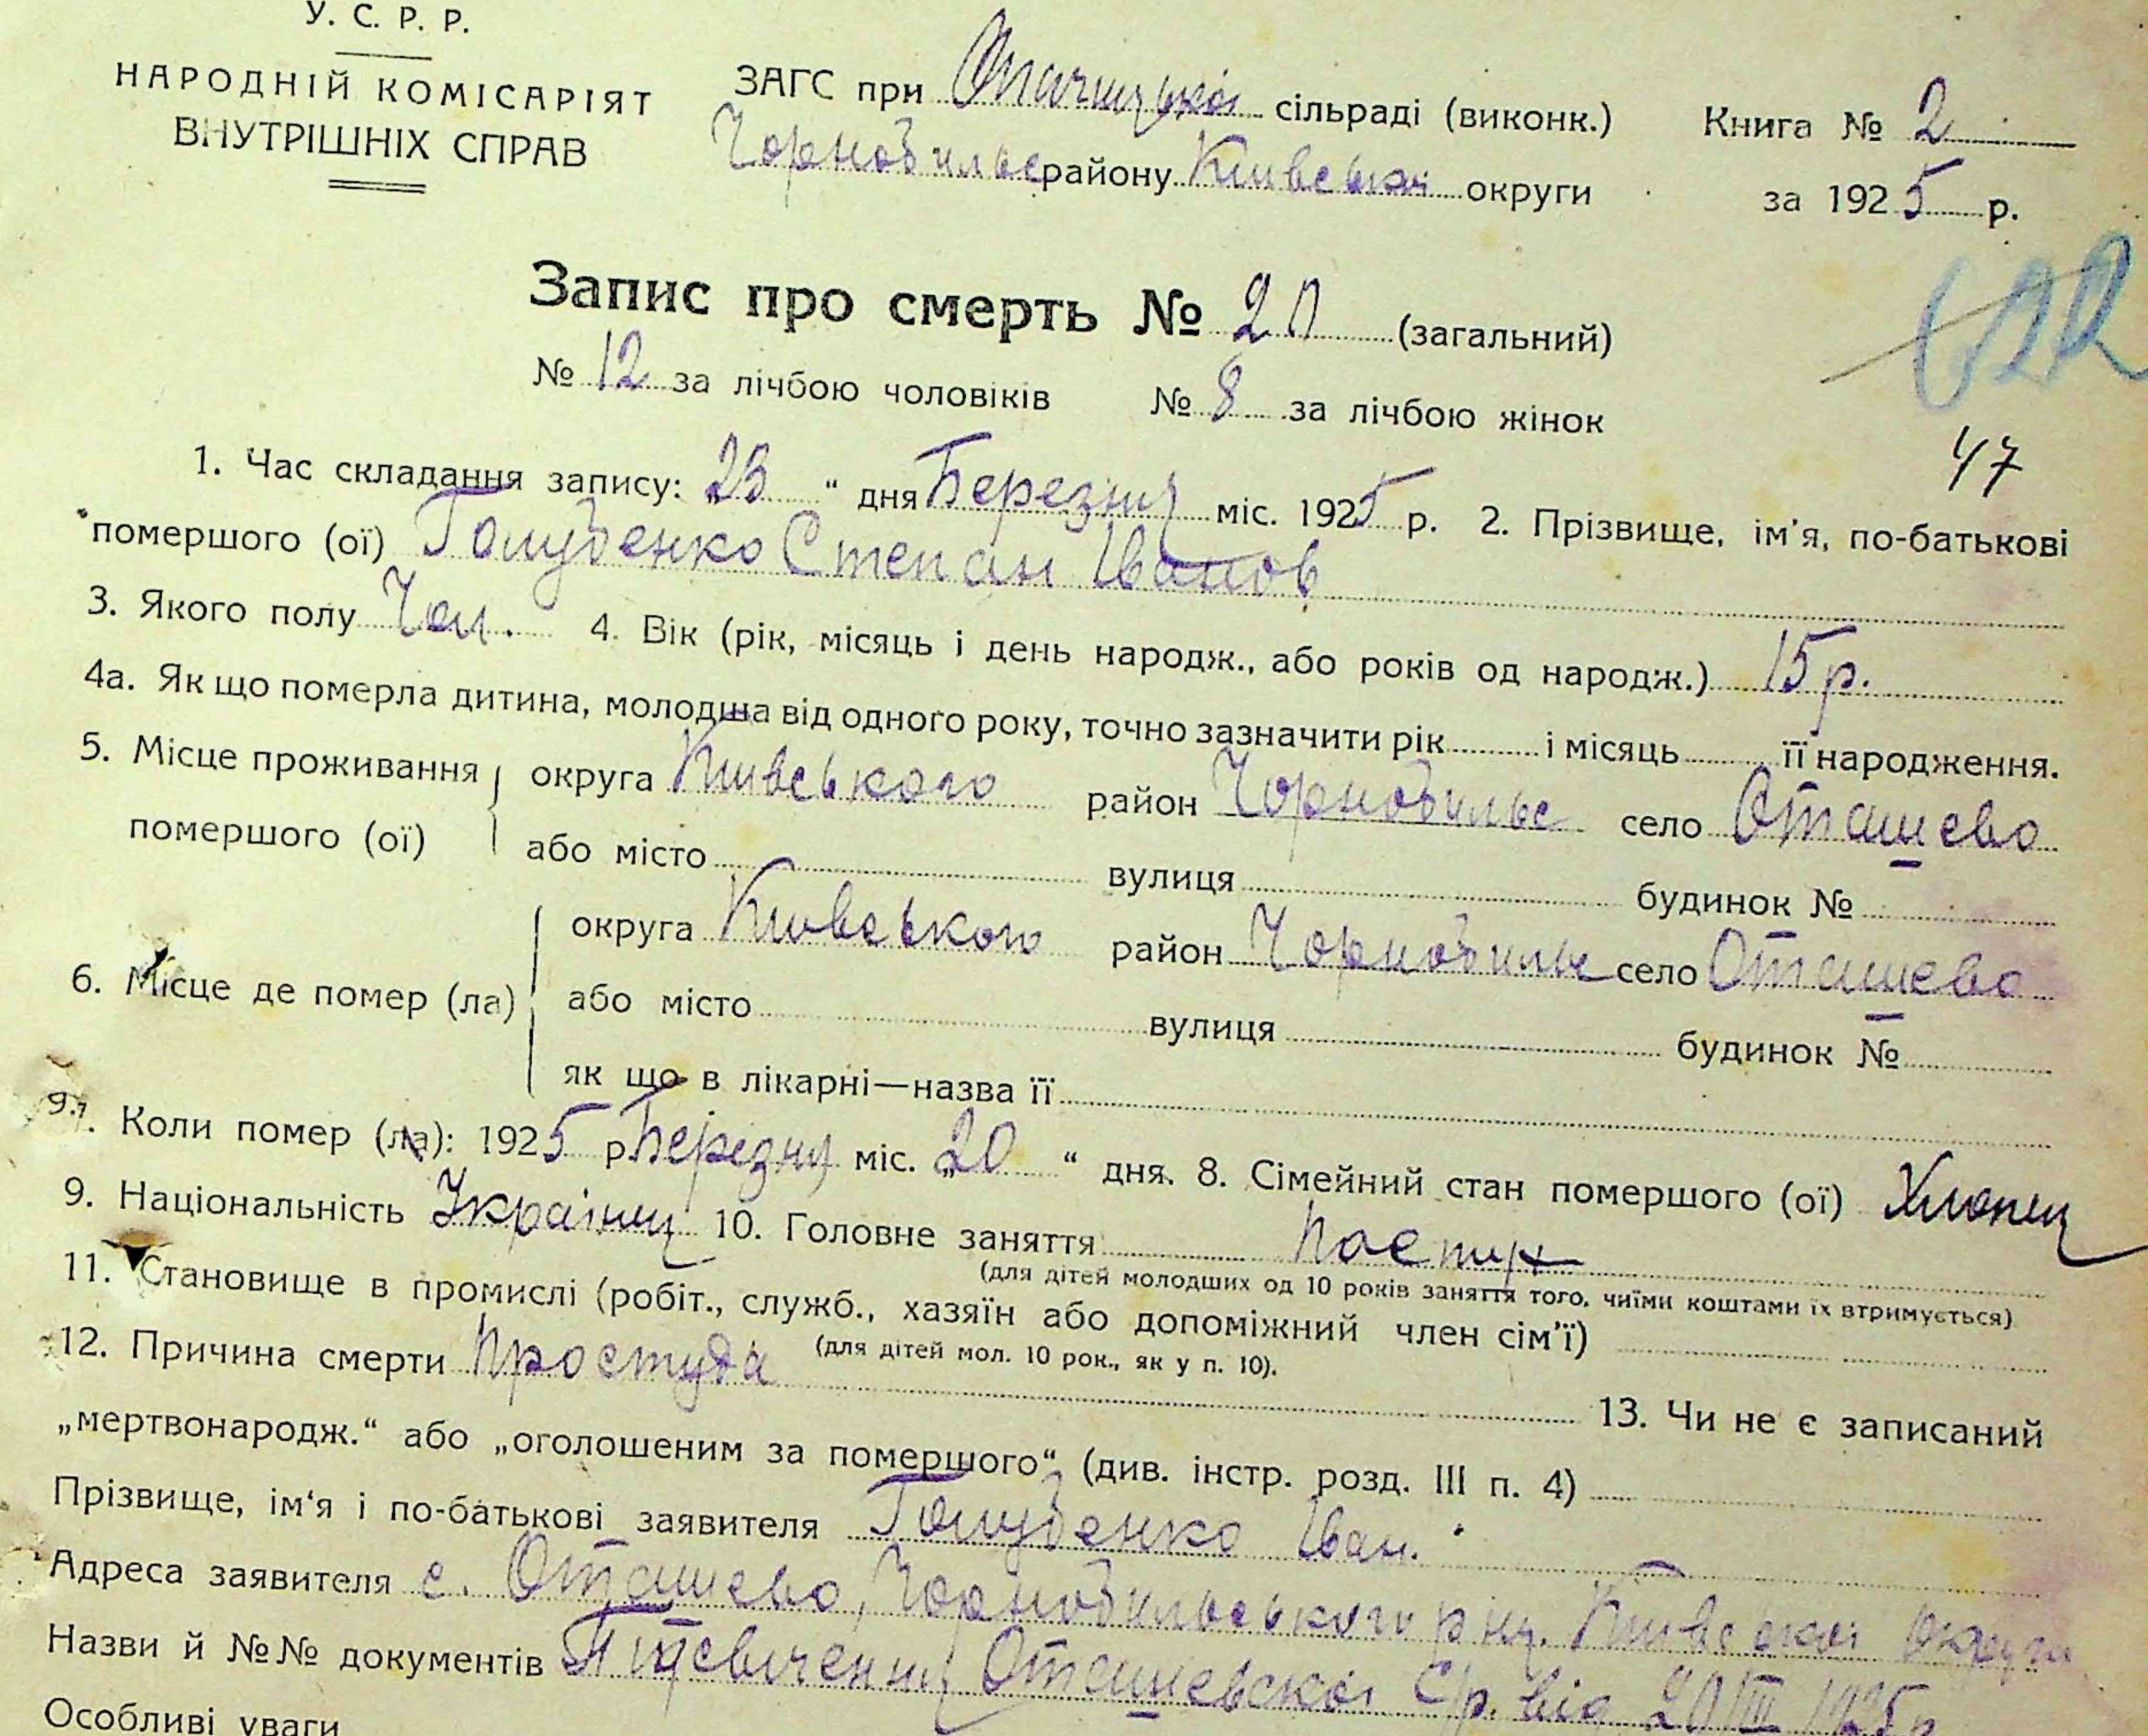 У. С. Р. Р.
НАРОДНІЙ КОМІСАРІЯТ
ВНУТРІШНІХ СПРАВ
ЗАГС при сільраді (виконк.)
Чорнобильс району Київської округи
Книга № 2
за 1925 р.
Запис про смерть № 20 (загальний)
№ 12 за лічбою чоловіків № 8 за лічбою жінок
47
1. Час складання запису: „23“ дня Березня міс. 1925 р. 2. Прізвище, ім'я, по-батькові
помершого (ої) Голубенко Степан Іванов
3. Якого полу Чол. 4. Вік (рік, місяць і день народж., або років од народж.) 15 р.
4а. Як що померла дитина, молодша від одного року, точно зазначити рік і місяць її народження.
5. Місце проживання помершого (ої) округа Київського район Чорнобильс село Оташево
або місто вулиця будинок №
6. Місце де помер (ла) округа Київського район Чорнобильс село Оташево
або місто вулиця будинок №
як що в лікарні—назва її
7. Коли помер (ла): 1925 р. Березня міс. „20“ дня. 8. Сімейний стан помершого (ої) Хлопец
9. Національність Українец 10. Головне заняття Пастух
(для дітей молодших од 10 років заняття того, чиїми коштами їх втримується)
11. Становище в промислі (робіт., служб., хазяїн або допоміжний член сім'ї)
(для дітей мол. 10 рок., як у п. 10).
12. Причина смерти Простуда 13. Чи не є записаний
„мертвонародж.“ або „оголошеним за помершого“ (див. інстр. розд. III п. 4)
Прізвище, ім'я і по-батькові заявителя Голубенко Іван.
Адреса заявителя с. Оташево, Чорнобильського р-ну. Київскої округи
Назви й №№ документів Оташевскої С/р. від 20/III 1925 р
Особливі уваги